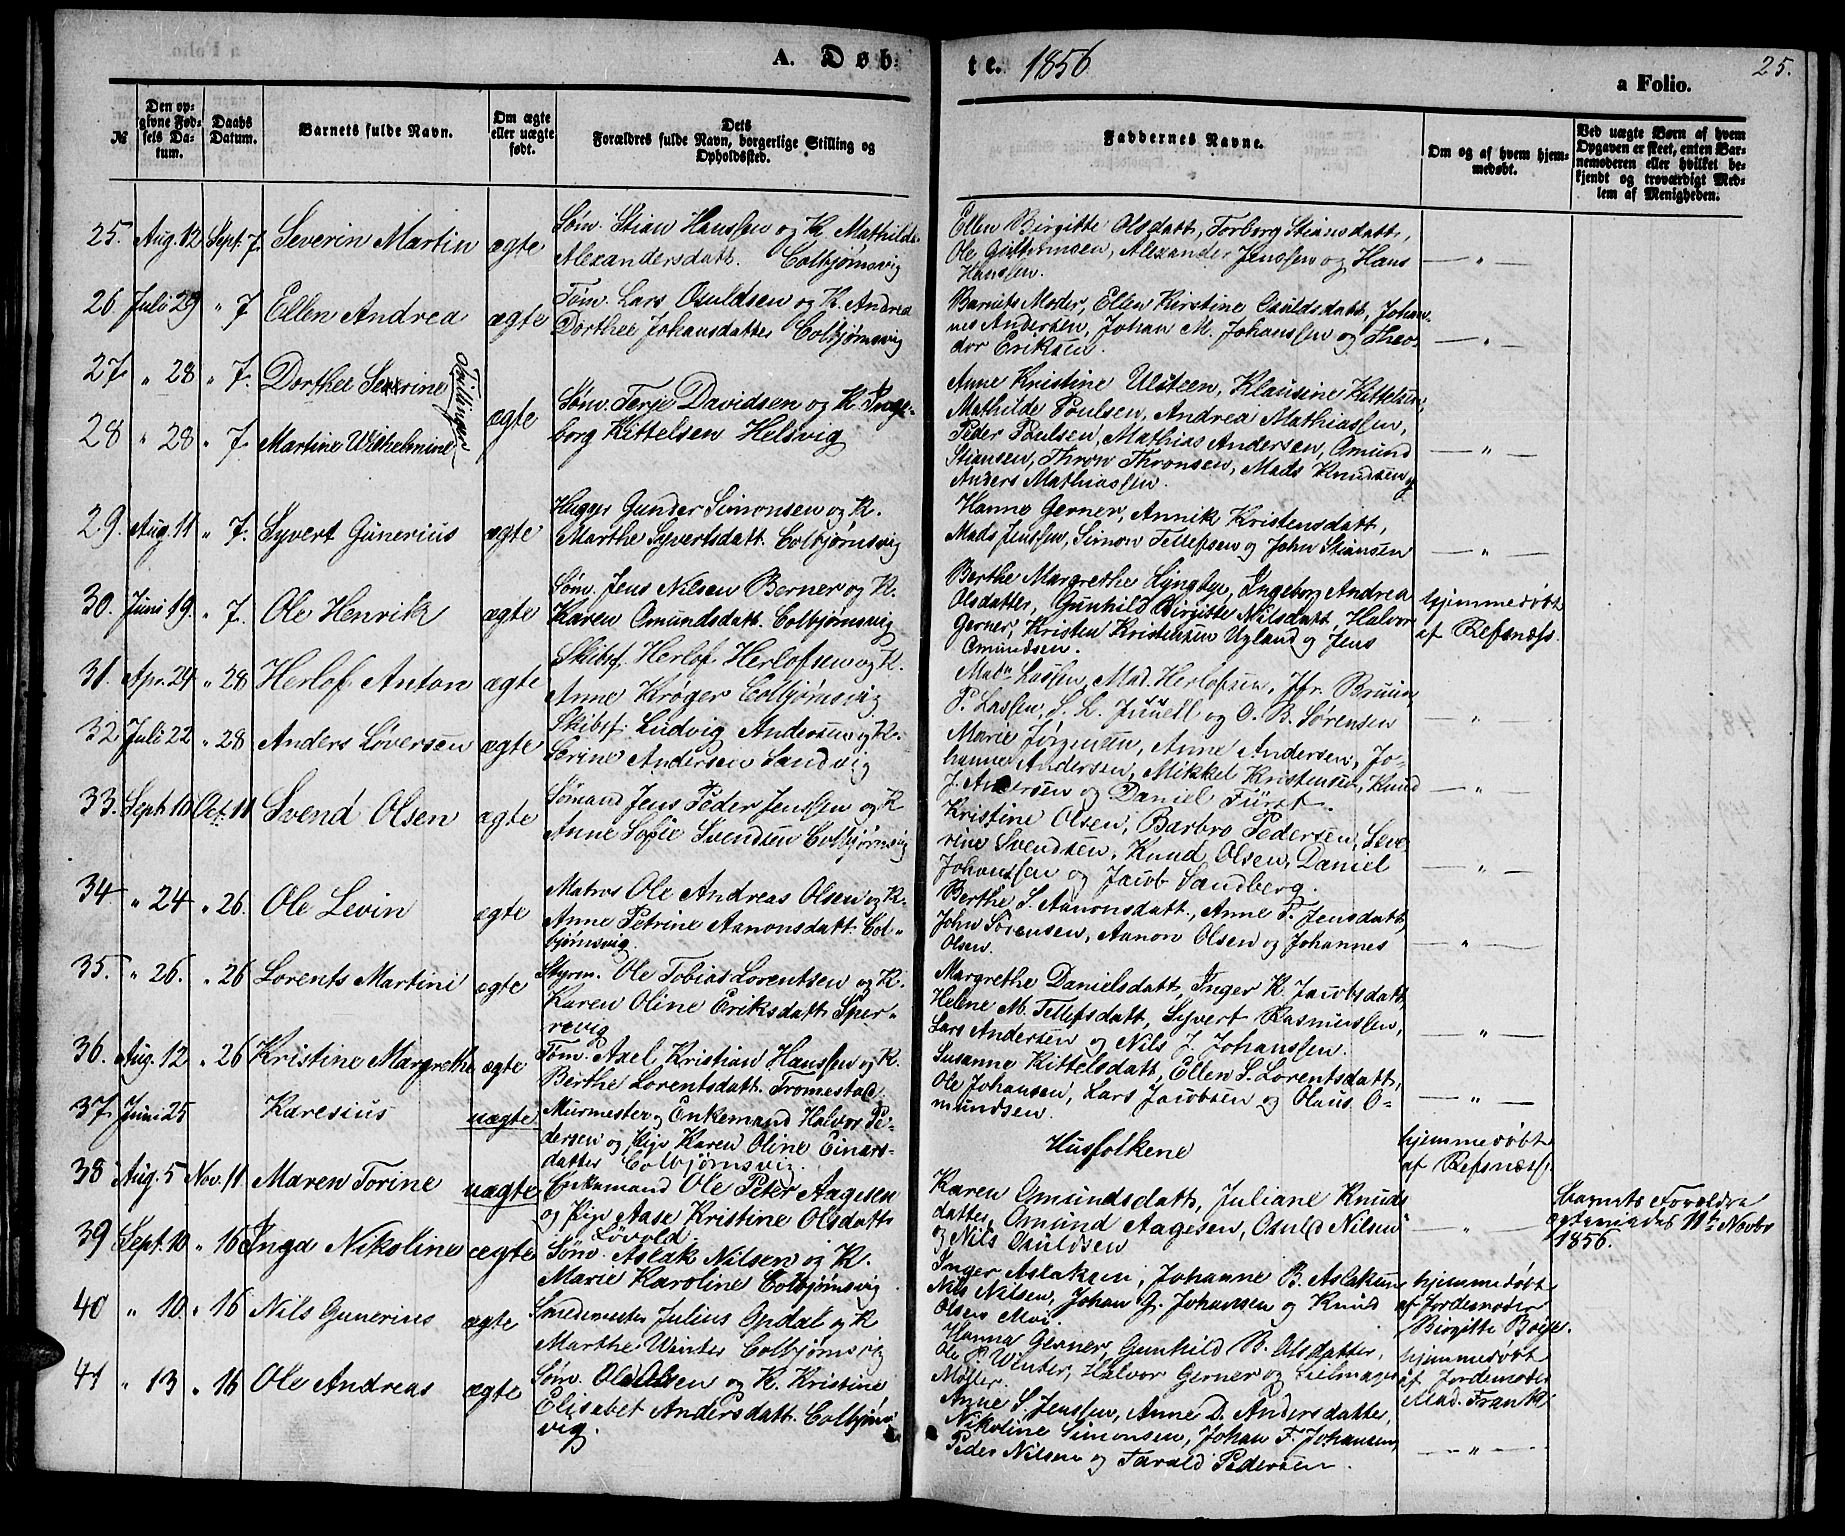 A. Døb-
te. 1856
a Folio. 25.
№
Den op-
givne Fød-
sels Da-
tum.
Daabs
Datum.
Barnets fulde Navn.
Om ægte
eller uægte
født.
Dets
Forældres fulde Navn, borgerlige Stilling og
Opholdssted.
Faddernes Navne.
Om og af hvem hjem-
medøbt.
Ved uægte Børn af hvem
Opgaven er skeet, enten Bar-
nemoderen eller hvilket be-
kjendt og troværdigt Med-
lem af Menigheden.
25. Aug. 12 Sept. 7. Severin Martin ægte
Søm. Stian Hanssen og K. Mathilde
Alexandersdatt. Colbjørnsvig
Ellen Birgitte Olsdatt, Torborg Stiansdatt,
Ole Guttelmsen, Alexander Jenssen og Hans
Hanssen. — " —
26 Juli 29 " 7 Ellen Andrea ægte
Tøm. Lars Osuldsen og K. Andrea
Dorthee Johansdatter Colbjørnsvig
Barnets Moder, Ellen Kirstine Osuldsdatt, Johan-
nes Andersen, Johan M. Johanssen og Theo-
dor Eriksen. — " —
27 " 28 " 7. Dorthee Severine
Tvillinger
28 " 28 " 7. Martine Wilhelmine ægte
Søm. Terje Davidsen og K. Inge-
borg Kittelsen Helsvig
Anne Kristine Ulsteen, Klausine Kittelsen,
Mathilde Poulsen, Andrea Mathiassen,
Peder Poulsen, Mathias Andersen, Omund
Stiansen, Thron Thronsen, Mads Knudsen og
Anders Mathiassen. — " —
29. Aug. 11 " 7. Syvert Gunerius ægte
Hugger Gunder Simonsen og K.
Marthe Syvertsdatt. Colbjørnsvig
Hanne Gerner, Annik Kristensdatt,
Mads Jenssen, Simon Tellefsen og John Stiansen — " —
30. Juni 19. " 7. Ole Henrik ægte
Søm. Jens Nilsen Berner og K.
Karen Omundsdatt. Colbjørnsvig
Berthe Margrethe Lyngbye, Ingeborg Andrea
Olsdatter, Gunhild Birgitte Nilsdatt, Halvor
Gerner, Kristen Kristensen Ugland og Jens
Omundsen.
hjemmedøbt
af Refsnæss.
31. Apr. 24 " 28 Herlof Anton ægte
Skibsf. Herlof Herlofsen og K.
Anne Krøger Colbjørnsvig
Mad. Lassen, Mad. Herlofsen, Jfr. Bruun,
P. Lassen, S. L. Juuell og O. B. Sørensen — " —
32 Juli 22 " 28 Anders Løversen ægte
Skibsf. Ludvig Andersen og K.
Serine Andersen Sandvig
Marie Jørgensen, Anne Andersen, Jo-
hanne Andersen, Mikkel Kristensen, Knud
J. Andersen og Daniel Fürst. — " —
33. Sept. 10 Oct. 11 Svend Olsen ægte
Sømand Jens Peder Jenssen og K
Anne Sofie Svendsen Colbjørnsvig
Kristine Olsen, Barbro Pedersen, Seve-
rine Svendsen, Knud Olsen, Daniel
Johanssen og Jacob Sandberg. — " —
34 " 24 " 26. Ole Levin ægte
Matros Ole Andreas Olsen og K.
Anne Petrine Aanonsdatt. Col-
bjørnsvig.
Berthe S. Aanonsdatt., Anne T. Jensdatt,
John Sørensen, Aanon Olsen og Johannes
Olsen. — " —
35. " 26. " 26 Lorents Martini ægte
Styrm. Ole Tobias Lorentsen og K.
Karen Oline Eriksdatt. Sper-
revig
Margrethe Danielsdatt, Inger K. Jacobsdatt,
Helene M. Tellefsdatt, Syvert Rasmussen,
Lars Andersen og Nils J. Johanssen. " —
36. Aug. 12 " 26 Kristine Margrethe ægte
Tøm. Axel Kristian Hanssen og K.
Berthe Lorentsdatt. Tromestad.
Susanne Kittelsdatt, Ellen S. Lorentsdatt,
Ole Johansen, Lars Jacobsen og Olaus O-
mundsen. — " —
37. Juni 25 Karesius uægte
Murmester og Enkemand Halvor Pe-
dersen og Pige Karen Oline Einars-
datter Colbjørnsvig.
Husfolkene
hjemmedøbt
af Refsnæss.
38 Aug. 5 Nov. 11. Maren Torine uægte
Enkemand Ole Peter Aagesen
og Pige Aase Kristine Olsdatt.
Løvold.
Karen Omundsdatt, Juliane Knuds
datter, Omund Aagesen, Osuld Nilsen
og Nils Osuldsen " —
Barnets Forældre
ægteviedes 11te Novbr
1856.
39 Sept. 10 " 16 Inga Nikoline ægte
Søm. Aslak Nilsen og K.
Marie Karoline Colbjørnsvig
Inger Aslaksen, Johanne B. Aslaksen
Nils Nilsen, Johan G. Johansen og Knud
Olsen Moi.
hjemmedøbt
af Jordemoder
Birgitte Boise.
40 " 10. " 16 Nils Gunerius ægte
Smedemester Julius Opdal og K
Marthe Winter Colbjørnsvig
Hanna Gerner, Gunhild B. Olsdatter,
Ole P. Winter, Halvor Gerner og Seilmager
Møller.
hjemmedøbt
af Jordemoder
Mad. Frank.
41 " 13 " 16 Ole Andreas ægte
Søm. Ole Olsen og K. Kristine
Elisabet Andersdatt. Colbjørns-
vig.
Anne S. Jenssen, Anne D. Andersdatter,
Nikoline Simonsen, Johan F. Johansen,
Peder Nilsen og Tarald Pedersen. — " —